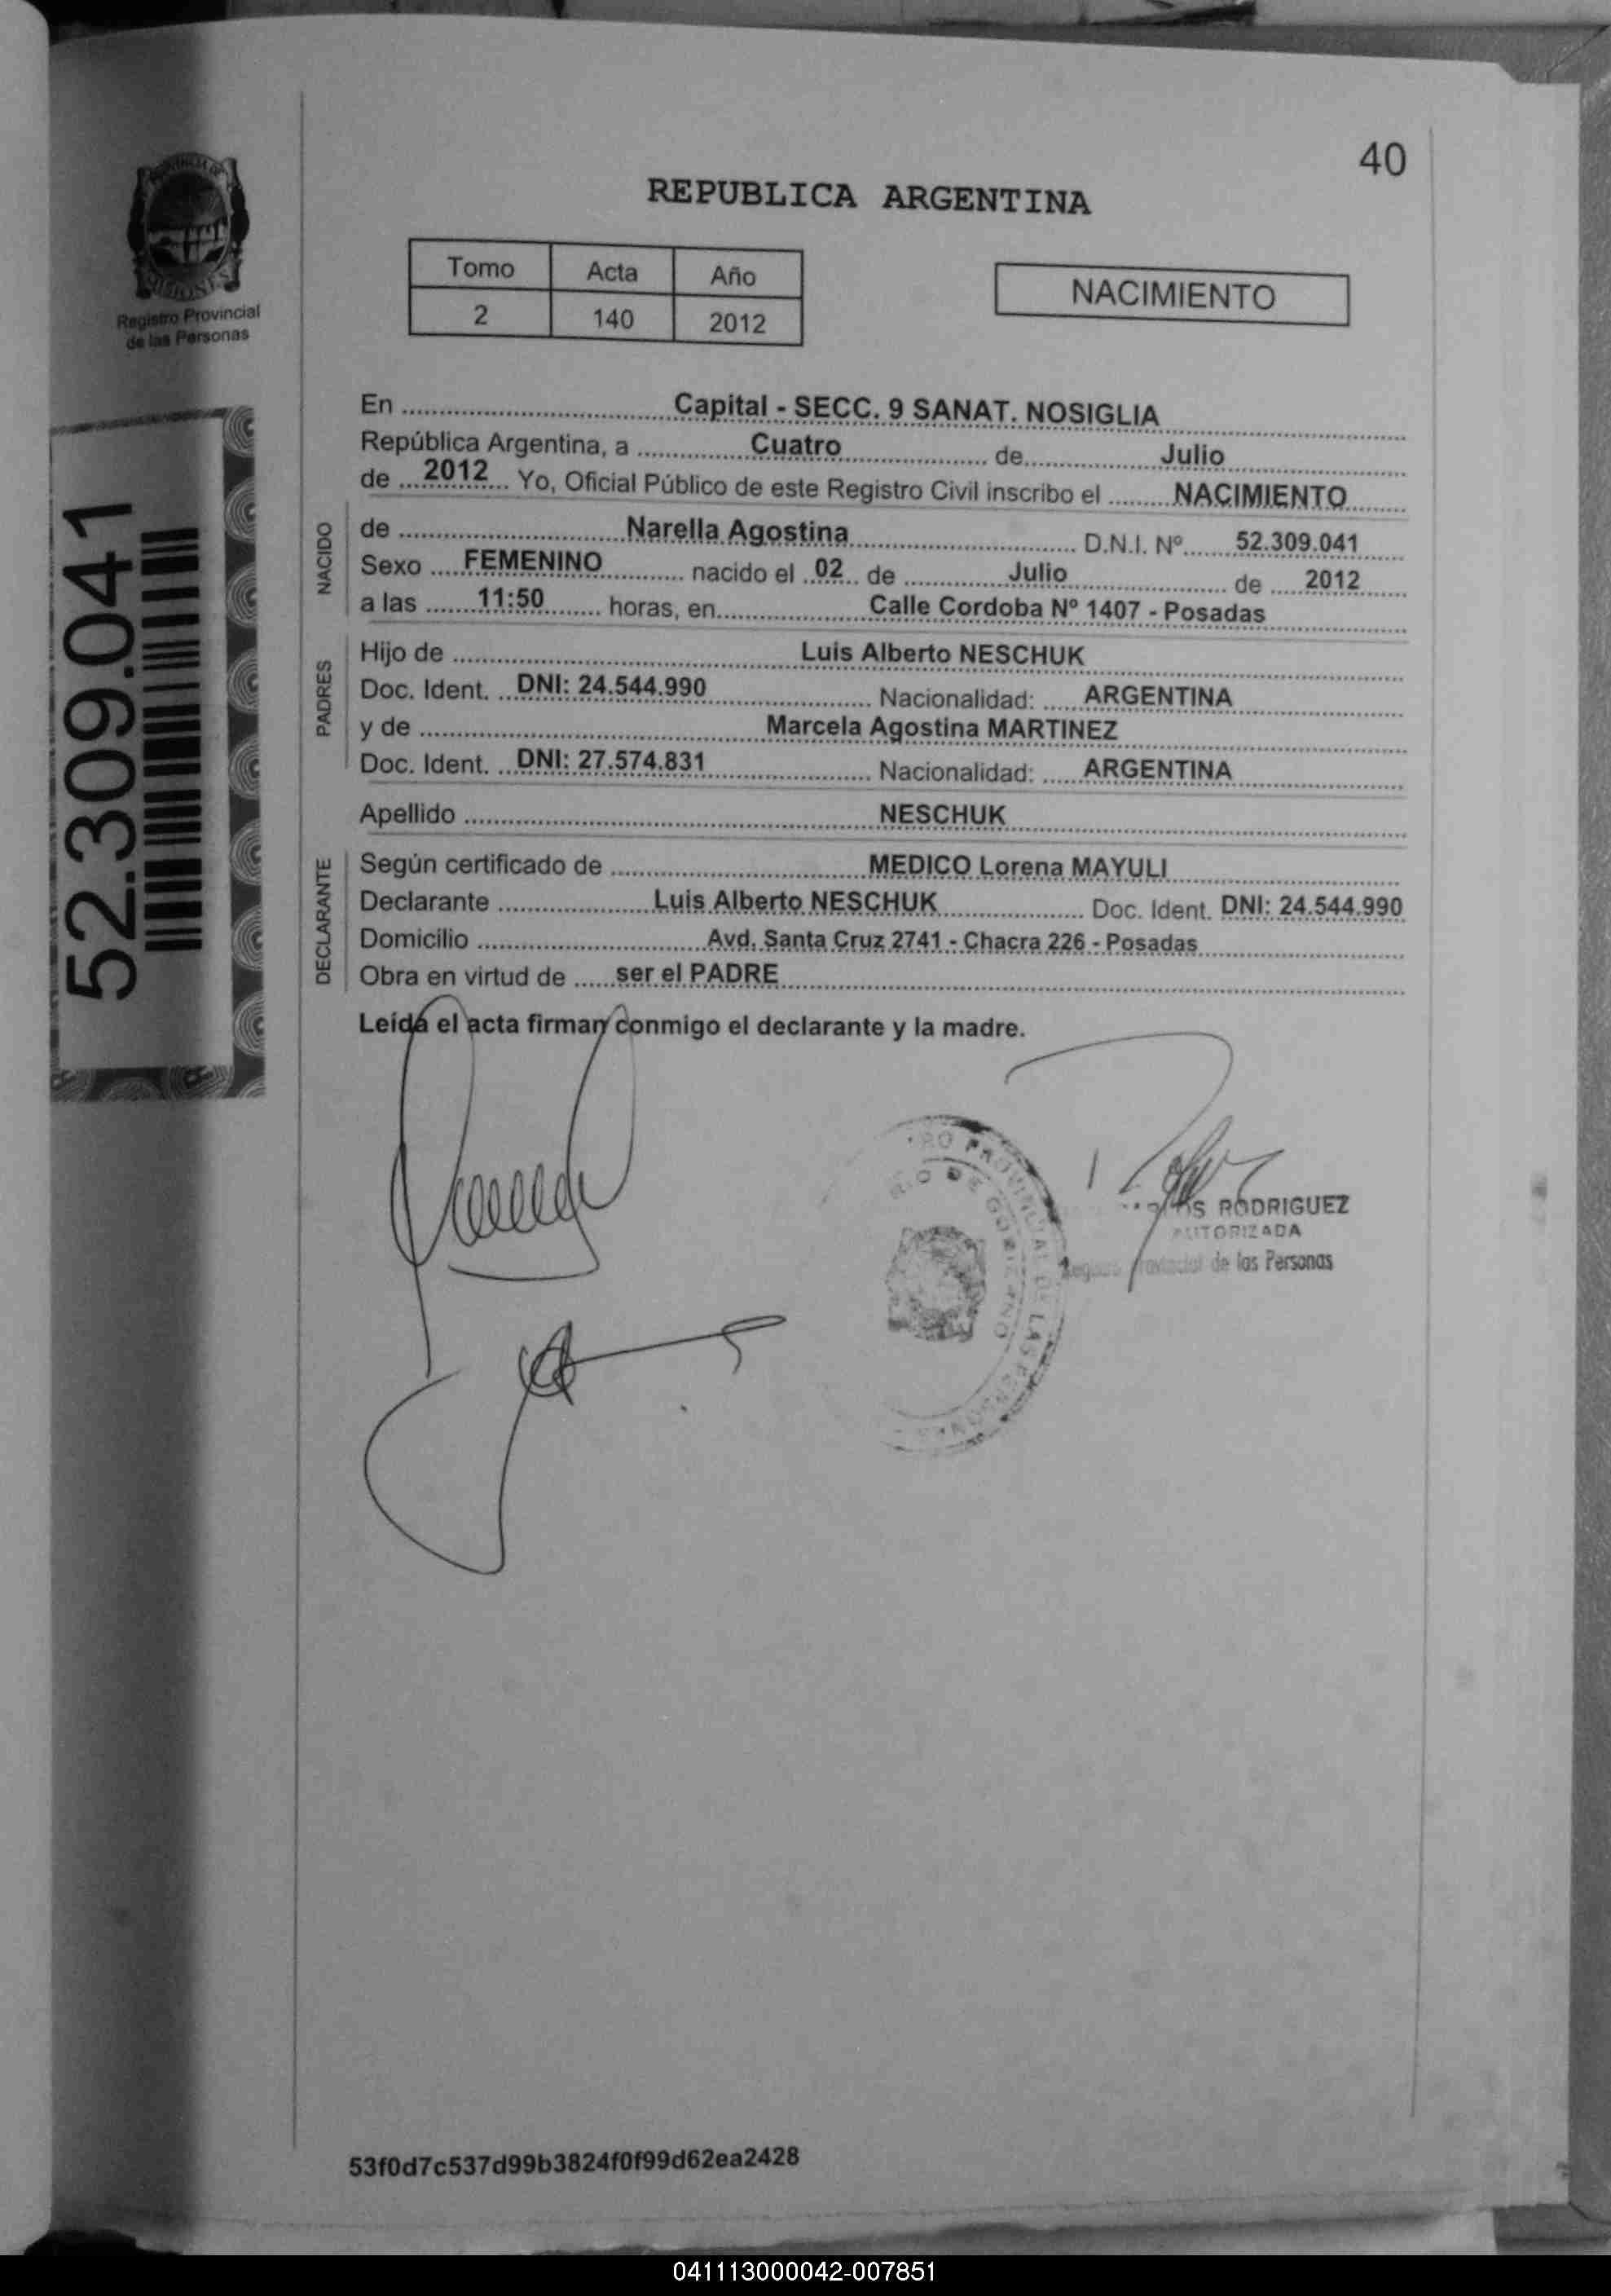 40
REPUBLICA ARGENTINA
PROVINCIA DE
MISIONES
Registro Provincial
de las Personas
Tomo Acta Año
2 140 2012
NACIMIENTO
52.309.041
En Capital - SECC. 9 SANAT. NOSIGLIA
República Argentina, a Cuatro de Julio
de 2012 Yo, Oficial Público de este Registro Civil inscribo el NACIMIENTO
NACIDO
de Narella Agostina D.N.I. Nº 52.309.041
Sexo FEMENINO nacido el 02 de Julio de 2012
a las 11:50 horas, en Calle Cordoba Nº 1407 - Posadas
PADRES
Hijo de Luis Alberto NESCHUK
Doc. Ident. DNI: 24.544.990 Nacionalidad: ARGENTINA
y de Marcela Agostina MARTINEZ
Doc. Ident. DNI: 27.574.831 Nacionalidad: ARGENTINA
Apellido NESCHUK
DECLARANTE
Según certificado de MEDICO Lorena MAYULI
Declarante Luis Alberto NESCHUK Doc. Ident. DNI: 24.544.990
Domicilio Avd. Santa Cruz 2741 - Chacra 226 - Posadas
Obra en virtud de ser el PADRE
Leída el acta firman conmigo el declarante y la madre.
PROVINCIAL DE LAS
DE GOBIERNO
RODRIGUEZ
AUTORIZADA
Provincial de las Personas
53f0d7c537d99b3824f0f99d62ea2428
041113000042-007851